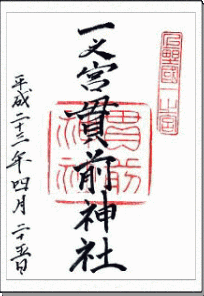 上野國一之宮
一之宮貫前神社
平成二十三年四月二十五日